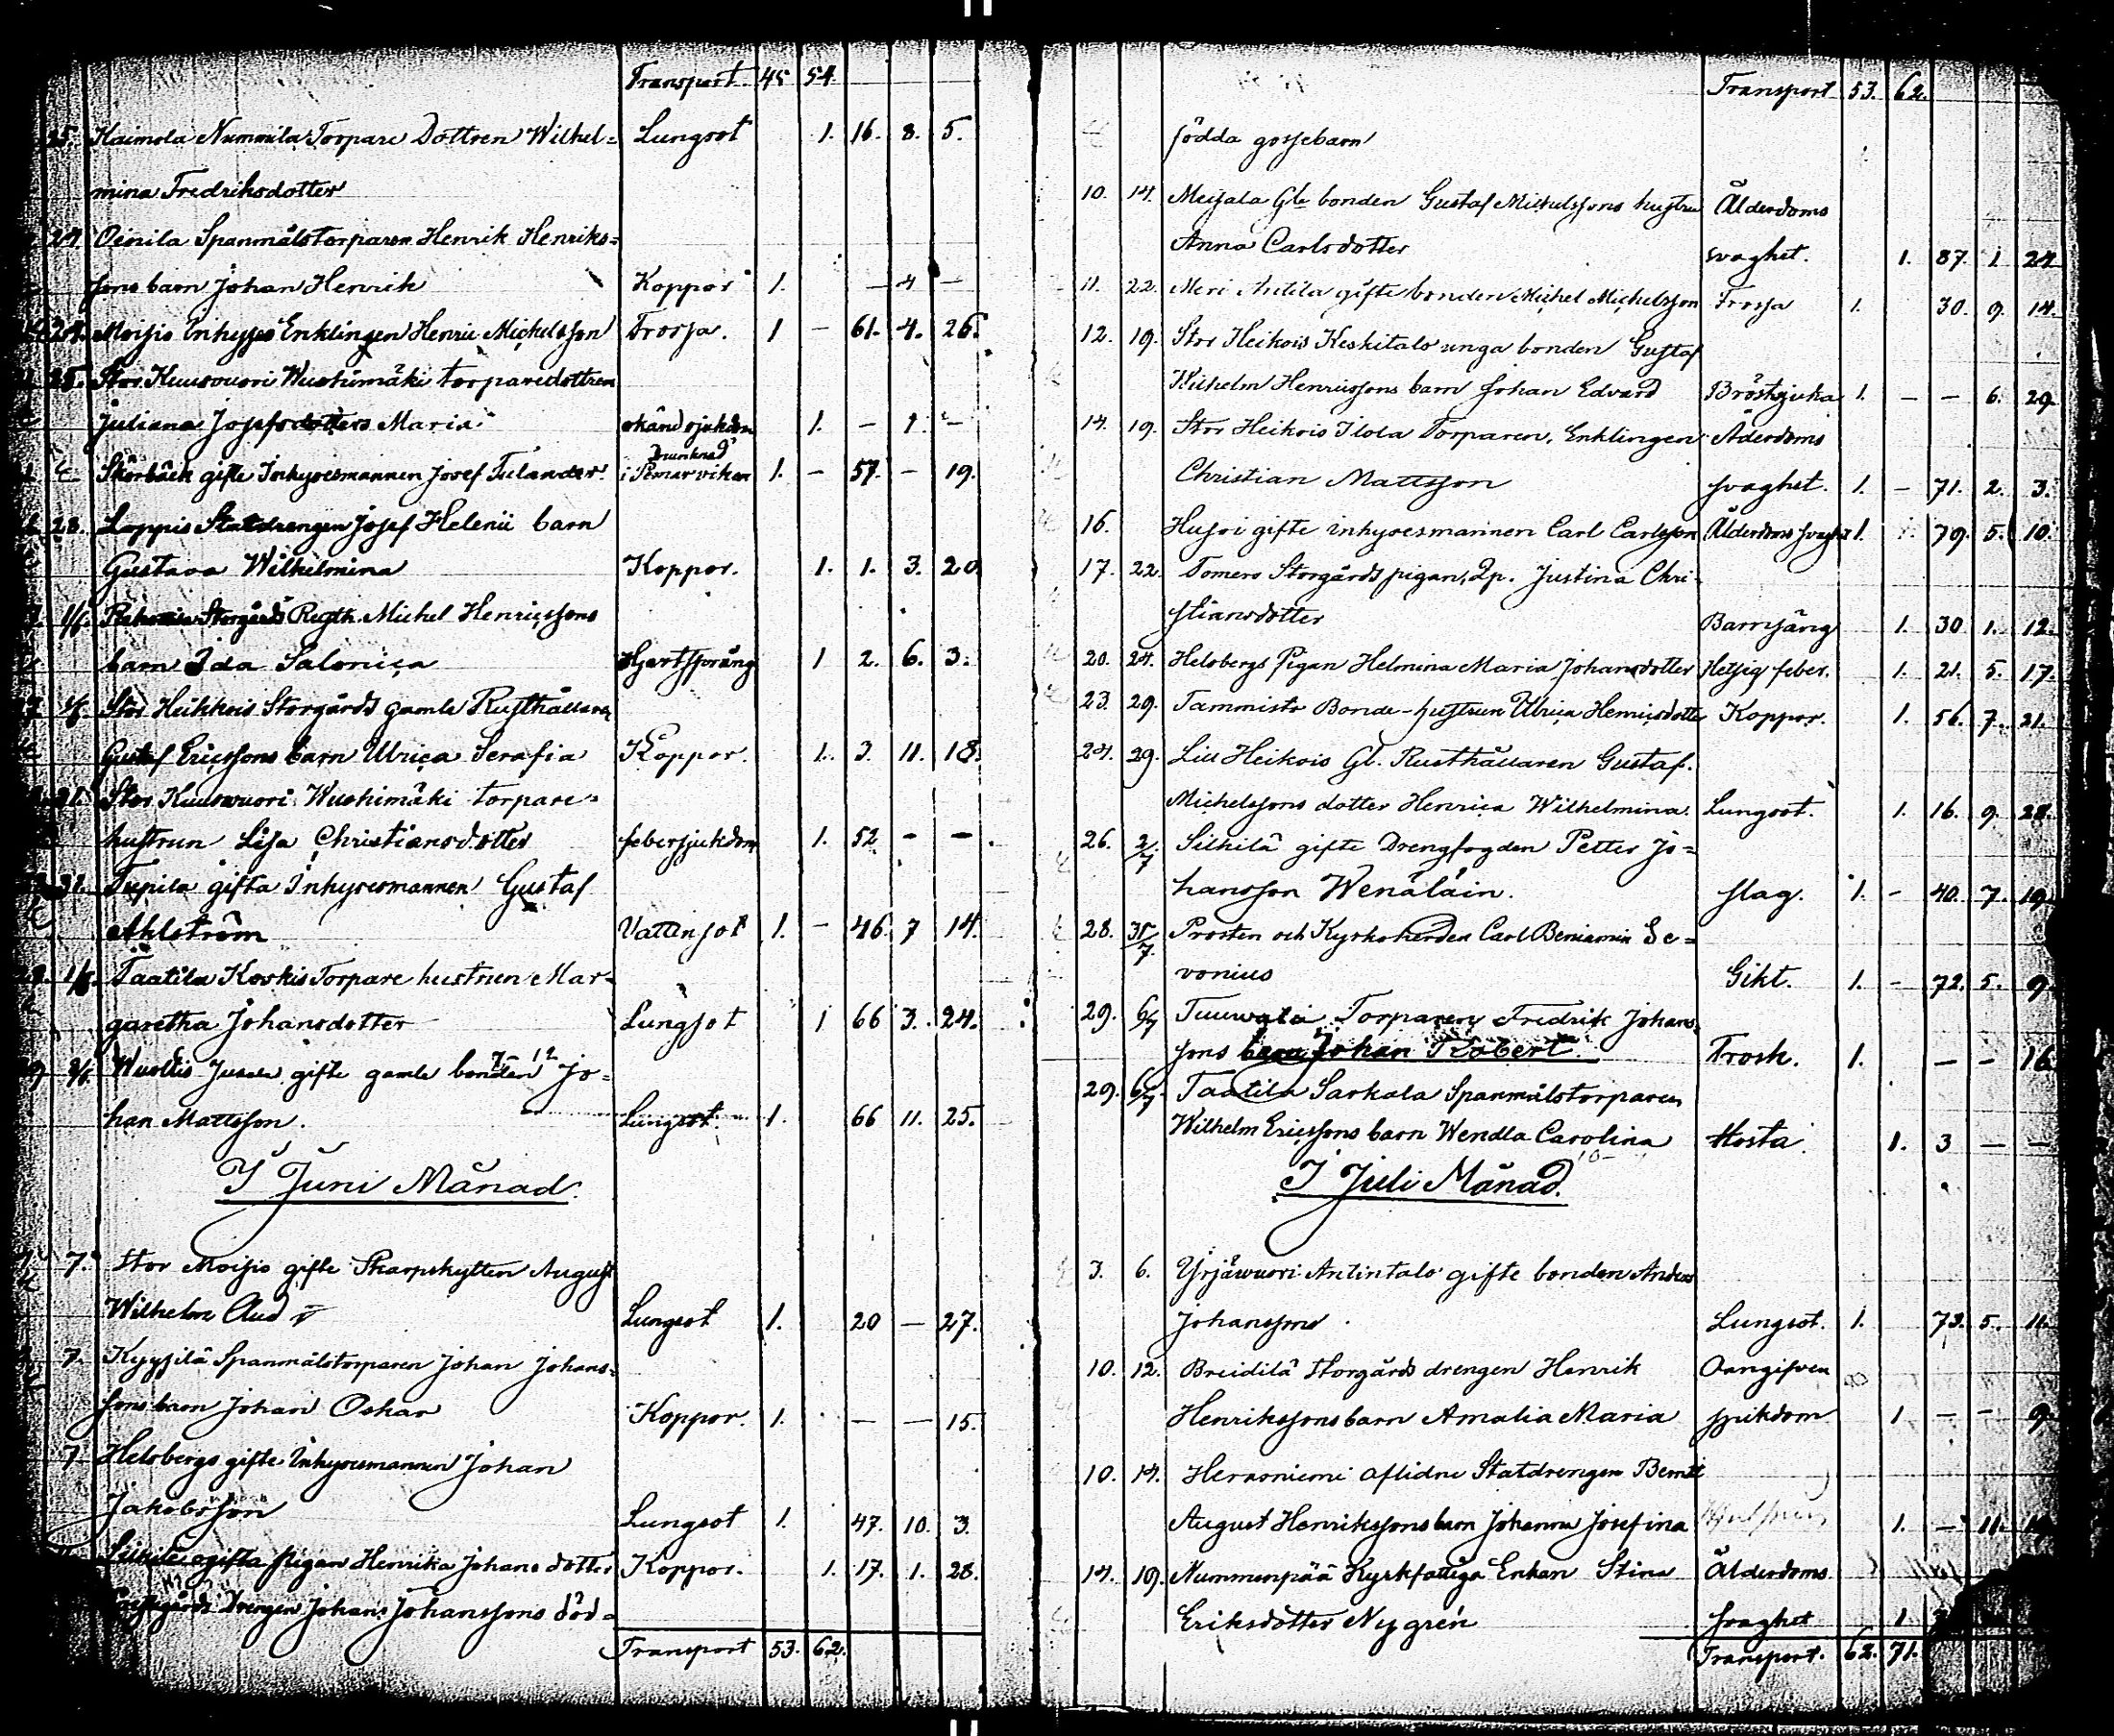 Transport 45 54
25. Kaimola Nummila Torpare Dottren Wilhel= Lungsot 1. 16. 8. 5.
mina Fredriksdotter
27. Oinila Spanmålstorparen Henrik Henriks=
sons barn Johan Henrik Koppor 1. — 4 —
Moisio Inhyses Enklingen Henric Michelsson Trossa. 1 — 61. 4. 26.
25. Stor Kuusvuori Wuohimäki torparedottren
Juliana Josefsdotters Maria okänd sjukdom 1. — 1. —
Drunknad
Skörbäck gifte Inhysesmannen Josef Tulander i Pemar viken 1. — 57. — 19.
28. Loppis Statdrengen Josef Helenii barn
Gustava Wilhelmina Koppor. 1. 1. 3. 20
1/6. Storgårds Rusth. Michel Henricssons
barn Ida Salonica Hjertsprång 1 2. 6. 3.
Stor Heikkois Storgårds gamle Rusthållaren
Gustaf Ericssons barn Ulrica Serafia Koppor. 1. 3. 11. 18.
31. Stor Kuusvuori Wuohimäki torpare=
hustrun Lisa Christiansdotter febersjukdom 1. 52 — —
31. Tupila gifta Inhysesmannen Gustaf
Ahlström Vattusot 1. — 46. 7 14.
1/6. Taatila Koskis Torpare hustrun Mar=
garetha Johansdotter Lungsot 1 66 3. 24.
Wuoltis Jusela gifte gamle bonden Jo=
han Mattsson. Lungsot 1. 66 11. 25.
I Juni Månad.
7. Stor Moisio gifte Skarpskytten August
Wilhelm Lungsot 1. 20 — 27.
7. Kyysilä Spanmålstorparen Johan Johans=
sons barn Johan Oskar Koppor. 1. — — 15.
7 Helsbergs gifte Inhysesmannen Johan
Jakobsson Lungsot 1. 47. 10. 3.
ogifta pigan Henrika Johansdotter Koppor. 1. 17. 1. 28.
Drengen Johan Johanssons död=
Transport 53. 62.
Transport 53. 62.
födda gossebarn
10. 14. Meisala Gle bonden Gustaf Michelssons hustru Ålderdoms
Anna Carlsdotter svaghet. 1. 87. 1 24
11. 22. Meri Antila gifte bonden Michel Michelsson Trossa 1. 30. 9. 14.
12. 19. Stor Heikois Keskitalo unga bonden Gustaf
Wilhelm Henricssons barn Johan Edvard Bröstsjuka 1. — — 6. 29.
14. 19. Stor Heikois Ilola Torparen, Enklingen Åderdoms
Christian Mattsson svaghet. 1. — 71. 2. 3.
16. Husvi gifte inhysesmannen Carl Carlsson Ålderdoms svaghet 1. 79. 5. 10.
17. 22. Tomero Storgårds pigan, Qp. Justina Chri=
stiansdotter Barnsäng 1. 30 1. 12.
20. 24. Helsbergs Pigan Helmina Maria Johansdotter Hetsig feber. 1. 21. 5. 17.
23. 29. Tammisto Bonde-hustrun Ulrica Henricsdotter Koppor. 1. 56. 7. 21.
24. 29. Lill Heikois Gl. Rusthållaren Gustaf
Michelssons dotter Henrica Wilhelmina. Lungsot. 1. 16. 9. 28.
26. 2/7 Silkilä gifte Drengfogden Petter Jo=
hansson Wenäläin. slag. 1. — 40. 7. 19
28. Prosten och Kyrkoherden Carl Beniamin Se=
vonius Gikt. 1. — 72. 5. 9
29. 6/7 Torparen Fredrik Johans=
sons barn Johan Robert Trosk. 1. — — 16.
29. 6/7 Taatila Sarkala Spanmålstorparen
Wilhelm Ericssons barn Wendla Carolina Hosta. 1. 3 — —
I Juli Månad.
3. 6. Yrjäwuori Antintalo gifte bonden Anders
Johansson Lungsot. 1. 73. 5. 11.
10. 12. Breidilä Storgårds drengen Henrik Oangifven
Henrikssons barn Amalia Maria sjukdom 1 — — 9
10. 14. Hersoniemi aflidne Statdrengen Berndt
August Henrikssons barn Johanna Josefina 1. — 11.
14. 19. Nummenpää Kyrkfattiga Enkan Stina Ålderdoms
Eriksdotter Nygren svaghet 1.
Transport. 62. 71.